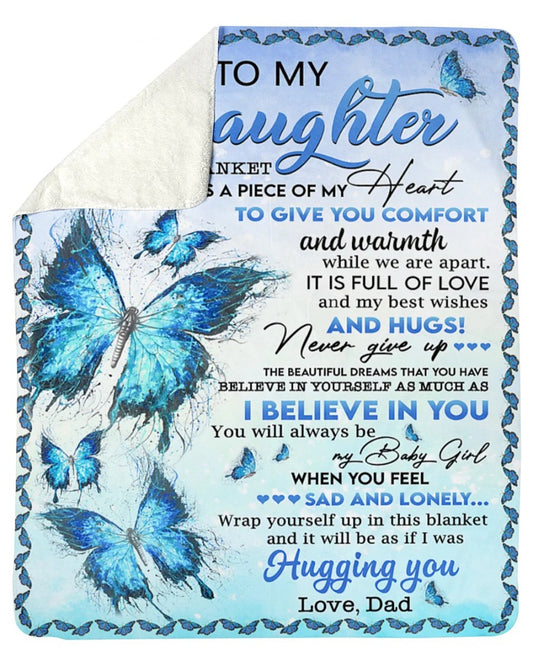 TO MY
aughter
NKET
S A PIECE OF MY Heart
TO GIVE YOU COMFORT
and warmth
while we are apart.
IT IS FULL OF LOVE
and my best wishes
AND HUGS!
Never give up
THE BEAUTIFUL DREAMS THAT YOU HAVE
BELIEVE IN YOURSELF AS MUCH AS
I BELIEVE IN YOU
You will always be
my Baby Girl
WHEN YOU FEEL
SAD AND LONELY...
Wrap yourself up in this blanket
and it will be as if I was
Hugging you
Love, Dad